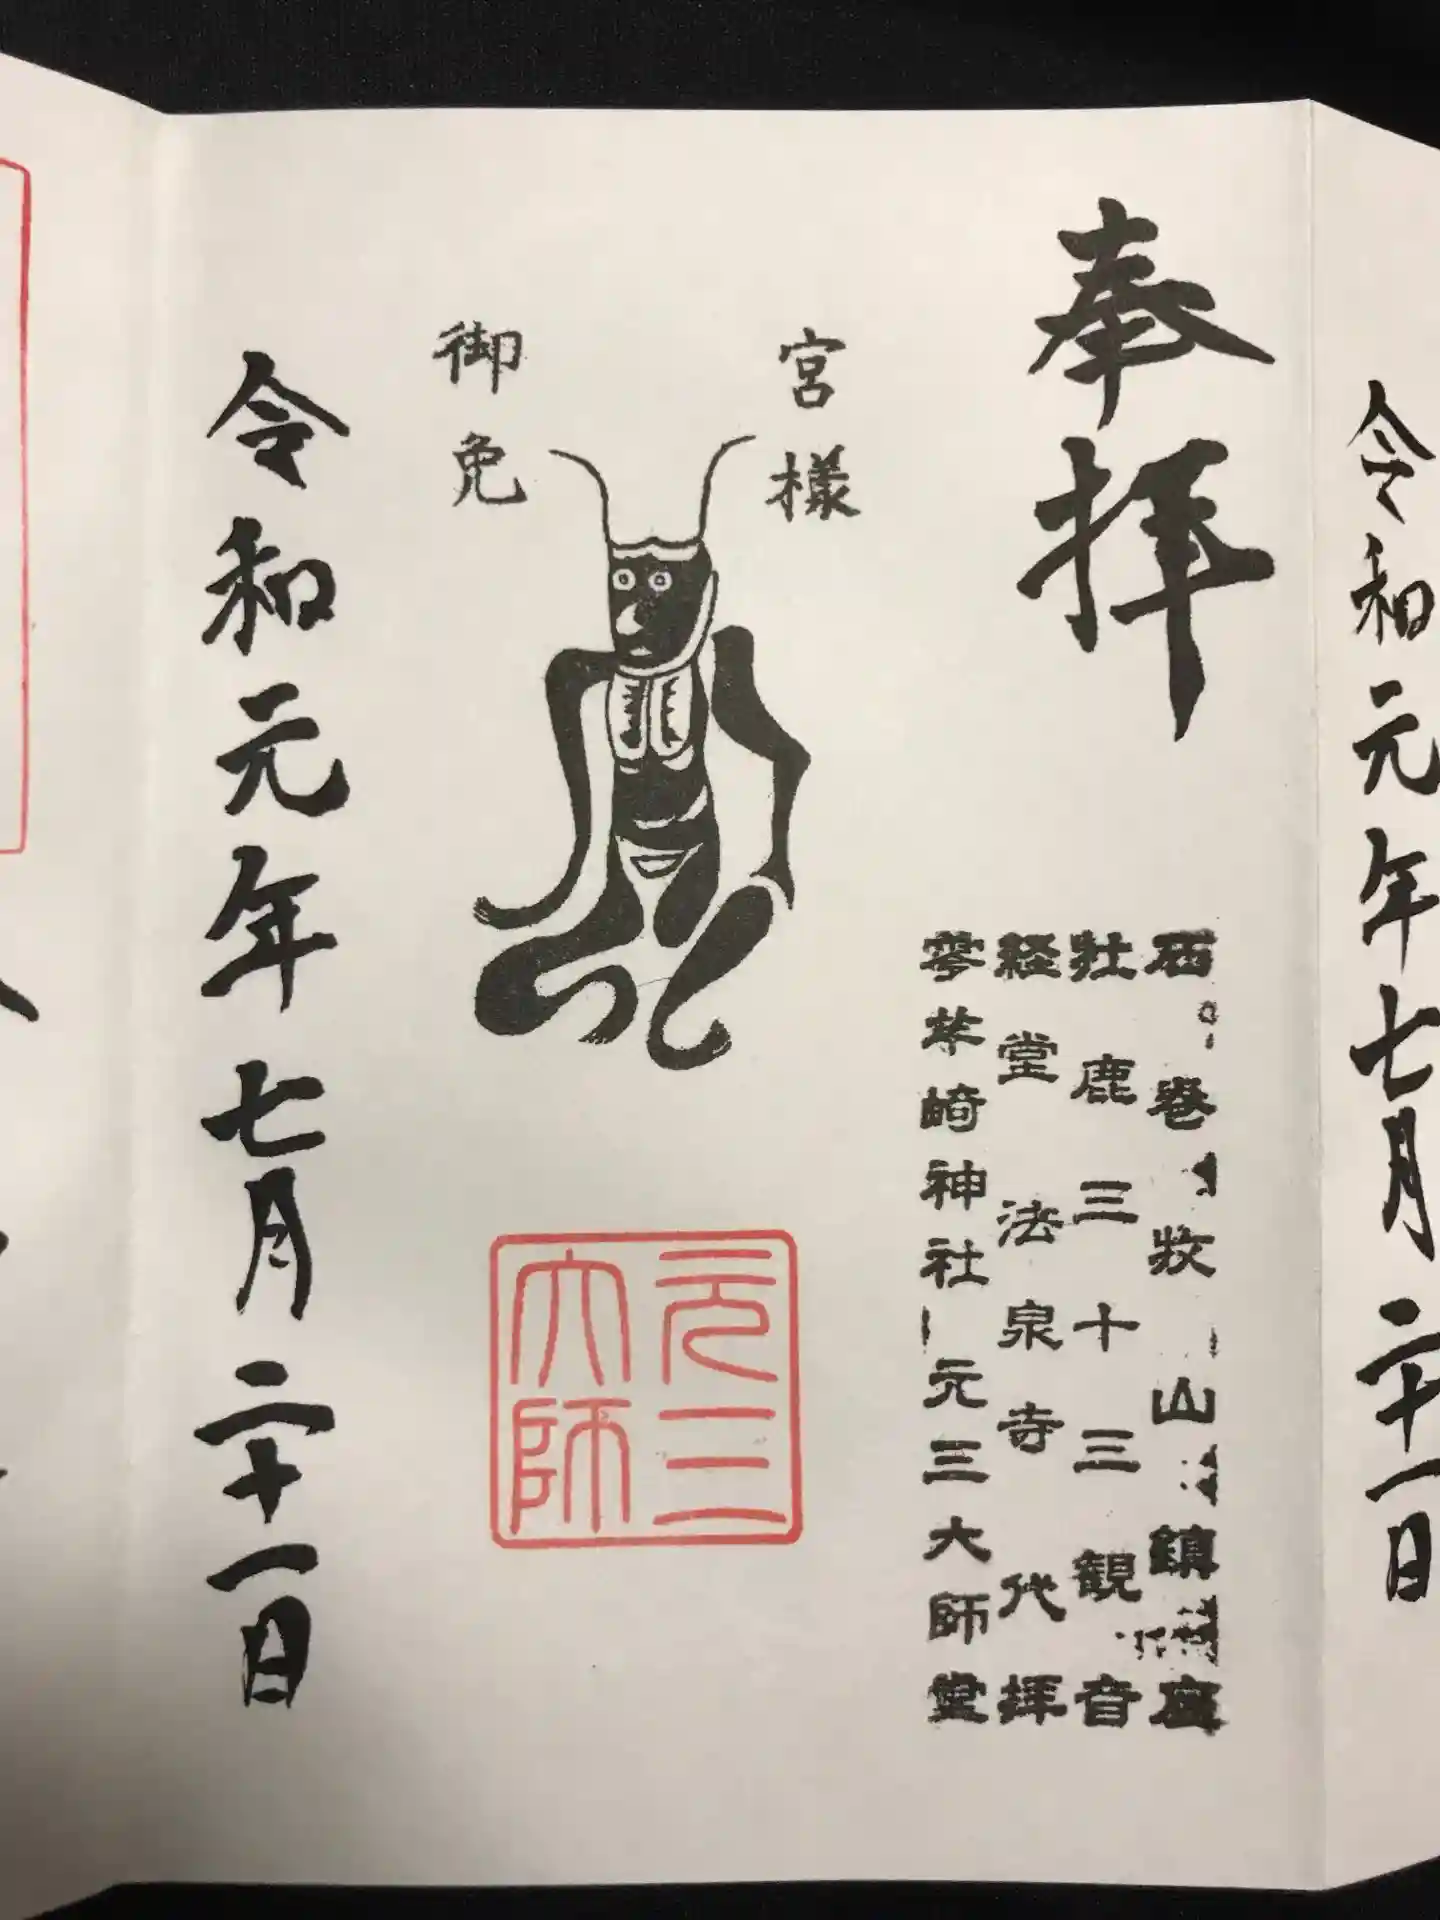 令和元年七月二十一日
奉拝
石巻牧山鎮座
牡鹿三十三観音
経堂法泉寺代拝
零羊崎神社元三大師堂
宮樣
御免
元三
大師
令和元年七月二十一日